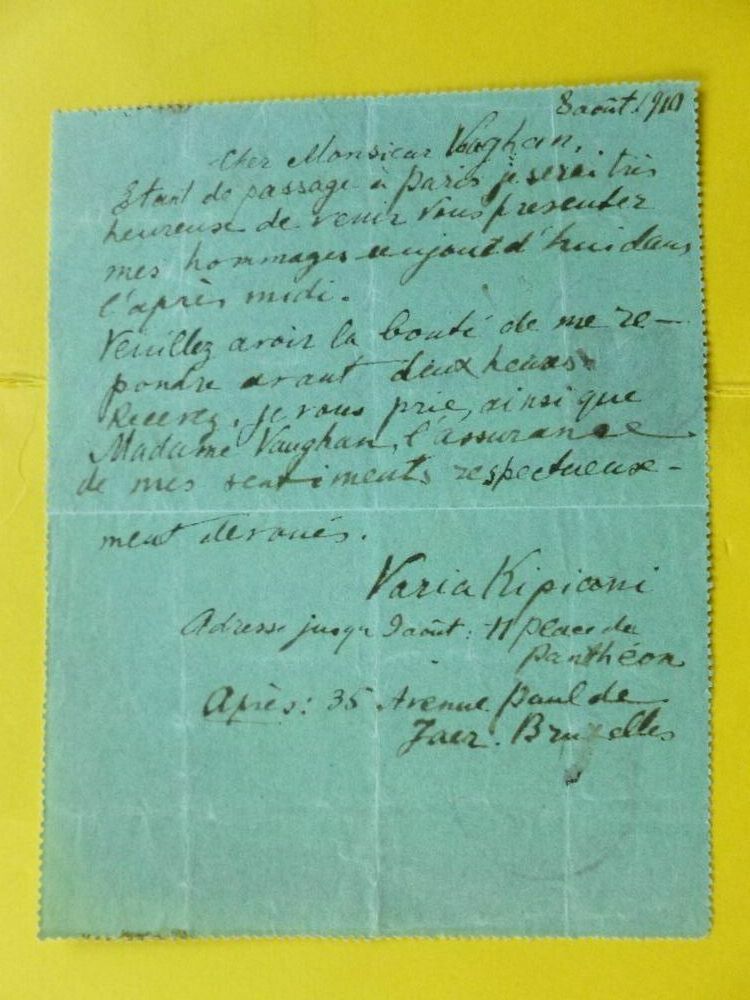 8 août 1910
Cher Monsieur Vaughan,
Etant de passage à Paris je serai très
heureuse de venir vous presenter
mes hommages aujourd'hui dans
l'après midi.
Veuillez avoir la bonté de me re-
pondre avant deux heures
Recevez, je vous prie, ainsi que
Madame Vaughan, l'assurance
de mes sentiments respectueuse-
ment devoués.
Varia Kipiani
Adresse jusqu 9 août : 11 place du
Panthéon
Après : 35 Avenue Paul de
Jaer. Bruxelles